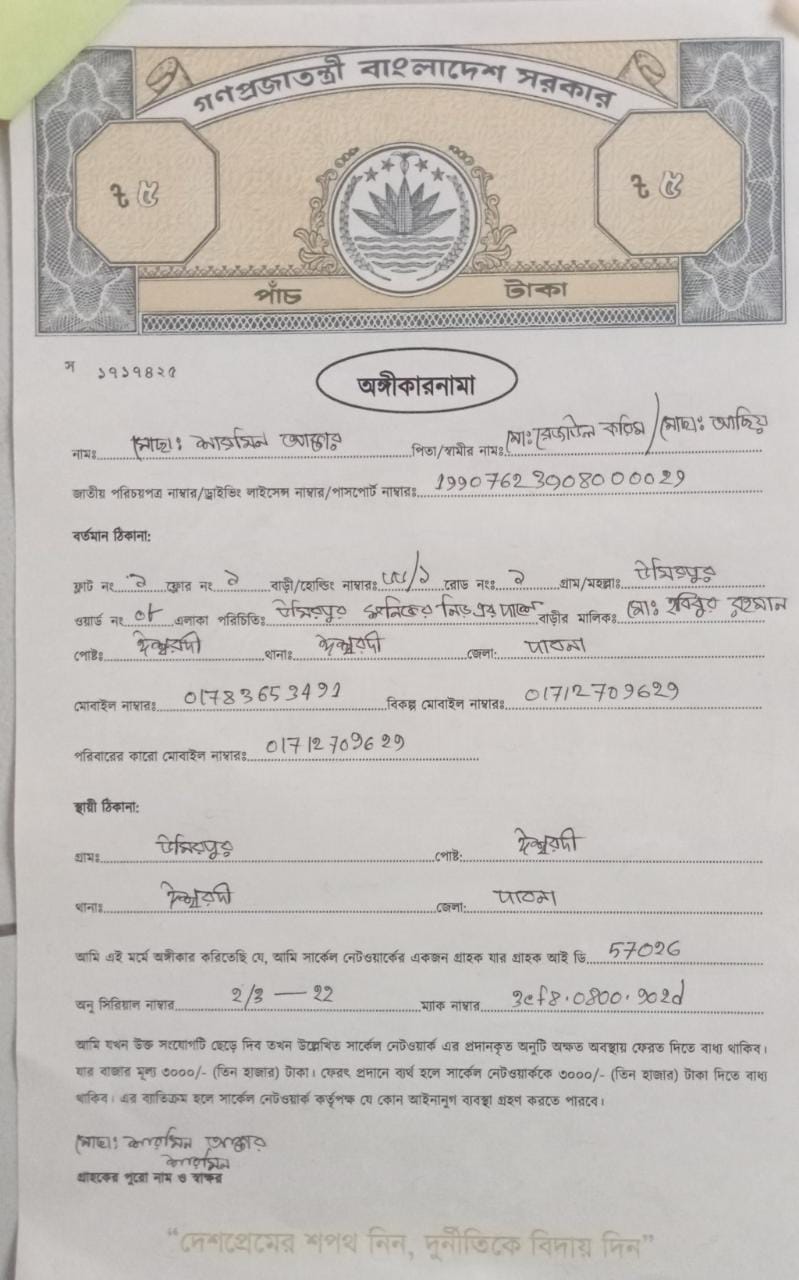 গণপ্রজাতন্ত্রী বাংলাদেশ সরকার
৳ ৫ ৳ ৫
পাঁচ টাকা
স ১৭১৭৪২৫
অঙ্গীকারনামা
নামঃ মোছাঃ আক্তার পিতা/স্বামীর নামঃ মোঃ রেজাউল করিম / মোছাঃ আছিয়া
জাতীয় পরিচয়পত্র নাম্বার/ড্রাইভিং লাইসেন্স নাম্বার/পাসপোর্ট নাম্বারঃ 19907623908000029
বর্তমান ঠিকানা:
ফ্লাট নং ২ ফ্লোর নং ২ বাড়ী/হোল্ডিং নাম্বারঃ রোড নংঃ ২ গ্রাম/মহল্লাঃ উমিরপুর
ওয়ার্ড নং ০৮ এলাকা পরিচিতিঃ উমিরপুর এর পাশে বাড়ীর মালিকঃ মোঃ হবিবুর রহমান
পোষ্টঃ ঈশ্বরদী থানাঃ ঈশ্বরদী জেলা: পাবনা
মোবাইল নাম্বারঃ 01783653491 বিকল্প মোবাইল নাম্বারঃ 01712709629
পরিবারের কারো মোবাইল নাম্বারঃ 01712709629
স্থায়ী ঠিকানা:
গ্রামঃ উমিরপুর পোষ্ট: ঈশ্বরদী
থানাঃ ঈশ্বরদী জেলা: পাবনা
আমি এই মর্মে অঙ্গীকার করিতেছি যে, আমি সার্কেল নেটওয়ার্কের একজন গ্রাহক যার গ্রাহক আই ডি 57026
অনু সিরিয়াল নাম্বার 2/3 — 22 ম্যাক নাম্বার 3cf8.0800.902d
আমি যখন উক্ত সংযোগটি ছেড়ে দিব তখন উল্লেখিত সার্কেল নেটওয়ার্ক এর প্রদানকৃত অনুটি অক্ষত অবস্থায় ফেরত দিতে বাধ্য থাকিব।
যার বাজার মূল্য ৩০০০/- (তিন হাজার) টাকা। ফেরৎ প্রদানে ব্যর্থ হলে সার্কেল নেটওয়ার্ককে ৩০০০/- (তিন হাজার) টাকা দিতে বাধ্য
থাকিব। এর ব্যতিক্রম হলে সার্কেল নেটওয়ার্ক কর্তৃপক্ষ যে কোন আইনানুগ ব্যবস্থা গ্রহণ করতে পারবে।
মোছাঃ আক্তার
গ্রাহকের পুরো নাম ও স্বাক্ষর
“দেশপ্রেমের শপথ নিন, দুর্নীতিকে বিদায় দিন”